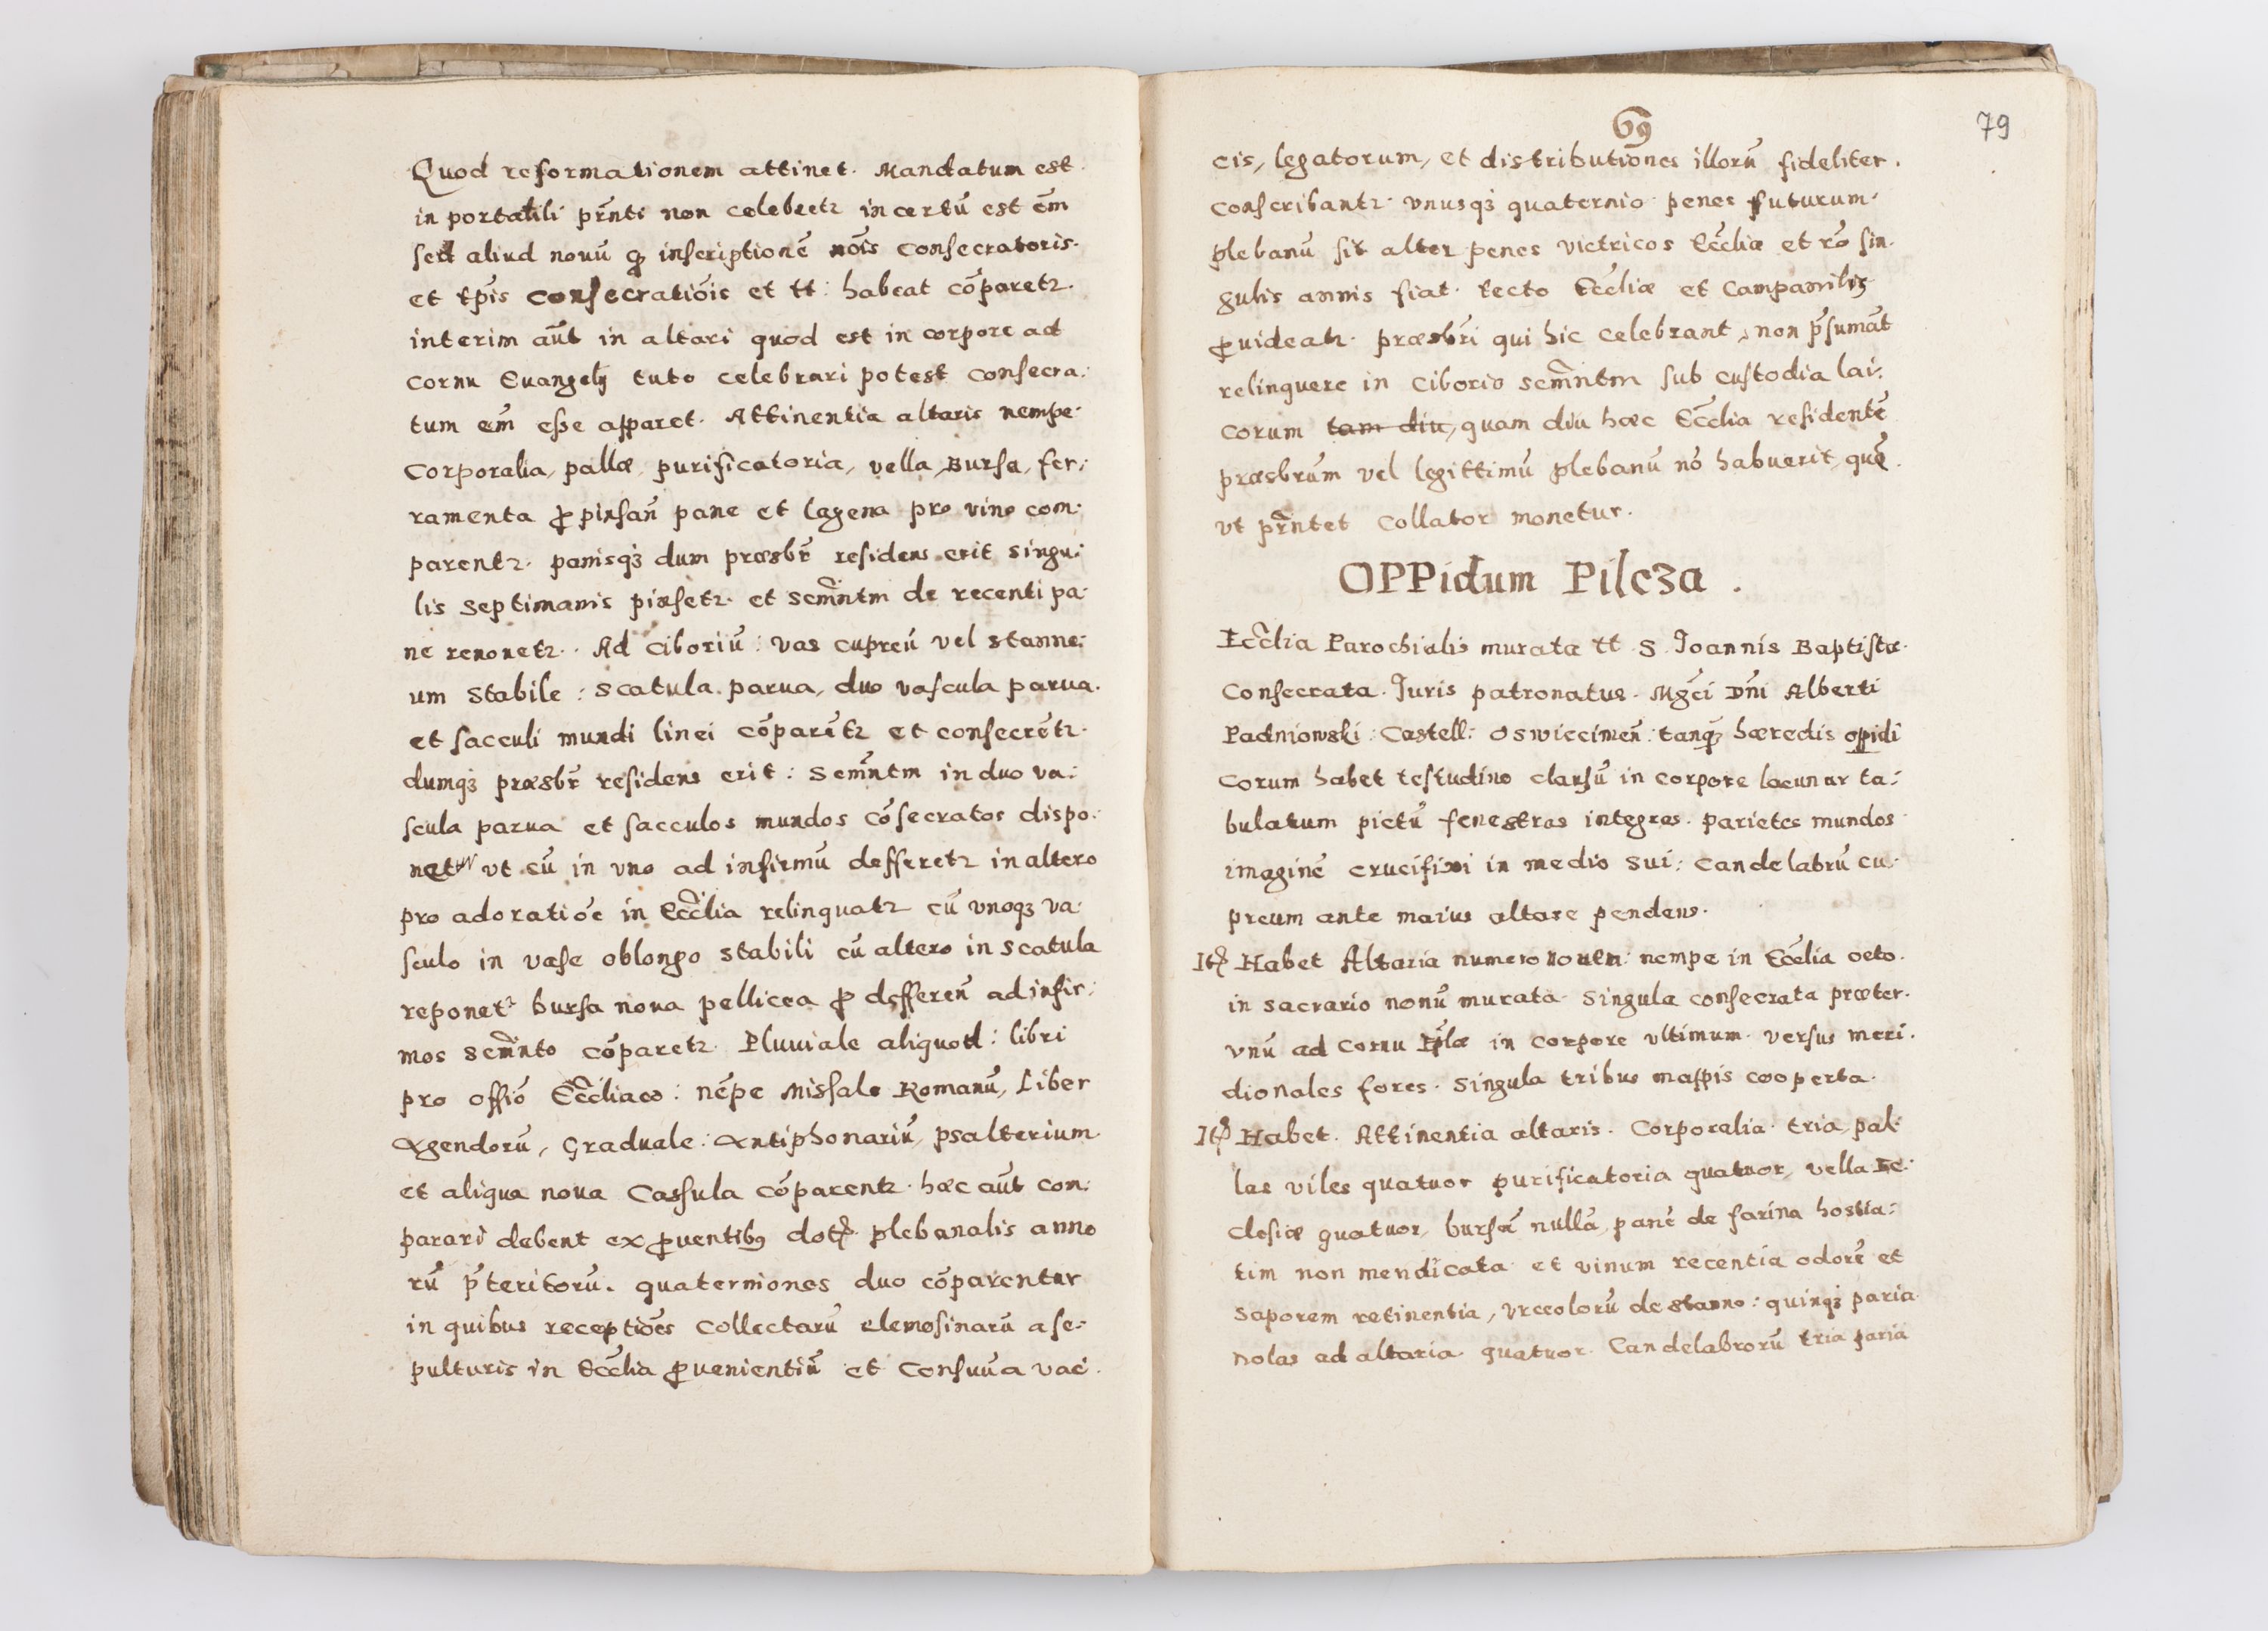 Quod reformationem attinet. Mandatum est
in portatili pr̃nti non celebretr incertũ est em̃
sed aliud nouũ q inscriptionẽ nõis consecratoris.
et tp̃is consecratiõis et tt: habeat cõparetr.
interim aũt in altari quod est in corpore ad
cornu Euangelij tuto celebrari potest consecra:
tum em̃ esse apparet. Attinentia altaris nempe
Corporalia, pallæ, purificatoria, vella, Bursa, fer:
ramenta ꝓ pinsañ pane et lagena pro vino com:
parentr. panisqꝫ dum præsbr̃ residens erit singu:
lis septimanis pinsetr. et Sem̃ntm de recenti pa:
ne renouetr. Ad Ciboriũ: vas cupreũ vel stanne:
um stabile: scatula parua, duo vascula parua.
et sacculi mundi linei cõparẽtr et consecrẽtr.
dumqꝫ præsbr̃ residens erit: Sem̃ntm in duo va:
scula parua et sacculos mundos cõsecratos dispo:
netur vt cũ in vno ad infirmũ defferetr in altero
pro adoratiõe in Eccl̃ia relinquatr cũ vnoqꝫ va:
sculo in vase oblongo stabili cũ altero in scatula
reponetr bursa noua pellicea ꝓ defferen̄ ad infir:
mos Sem̃nto cõparetr. Pluuiale aliquod: libri
pro offiõ Eccl̃iaco: nẽpe Missale Romanũ, Liber
Agendorũ, Graduale: Antiphonariũ, psalterium
et aliqua noua Cassula cõparentr. hæc aũt con:
parari debent ex ꝓuentibꝰ dotꝭ plebanalis anno
rũ p̃teritorũ. quaterniones duo cõparentur
in quibus receptiões collectarũ elemosinarũ a se:
pulturis in Eccl̃ia ꝓuenientiũ et Censuũ a vac:
69
79
cis, legatorum, et distributiones illorũ fideliter.
conscribantr. vnusqꝫ quaternio penes futurum
plebanũ sit alter penes victricos Eccl̃iæ et rõ sin:
gulis annis fiat. tecto Eccl̃iæ et Campanilis
ꝓuideatr. præsbr̃i qui hic celebrant, non p̃sumãt
relinquere in Ciborio Sem̃ntm sub custodia lai:
corum tam diu, quam diu hæc Eccl̃ia residentẽ
præsbrũm vel legittimũ plebanũ nõ habuerit, quẽ
vt pr̃ntet Collator monetur.
OPPidum Pilcza.
Eccl̃ia Parochialis murata tt S. Joannis Baptistæ
Consecrata. Juris patronatus. Mgc̃i Dn̄i Alberti
Padniowski: Castell: Oswiecimen̄: tanqꝫ hæredis oppidi
Corum habet testudine clausũ in corpore lacunar ta:
bulatum pictũ fenestras integras. parietes mundos
imaginẽ crucifixi in medio sui: Candelabrũ cu:
preum ante maius altare pendens.
Itꝫ Habet Altaria numero nouem: nempe in Eccl̃ia octo.
in sacrario nonũ murata. Singula consecrata præter.
vnũ ad Cornu Ep̃læ in corpore vltimum versus meri:
dionales fores. Singula tribus mappis cooperta.
Itꝫ Habet. Attinentia altaris. Corporalia tria, pal:
las viles quatuor purificatoria quatuor, vella Ec:
clesiæ quatuor, bursã nullã, panẽ de farina hostia:
tim non mendicata et vinum recentia odorẽ et
saporem retinentia, vrceolorũ de stanno: quinqꝫ paria
nolas ad altaria quatuor. Candelabrorũ tria paria